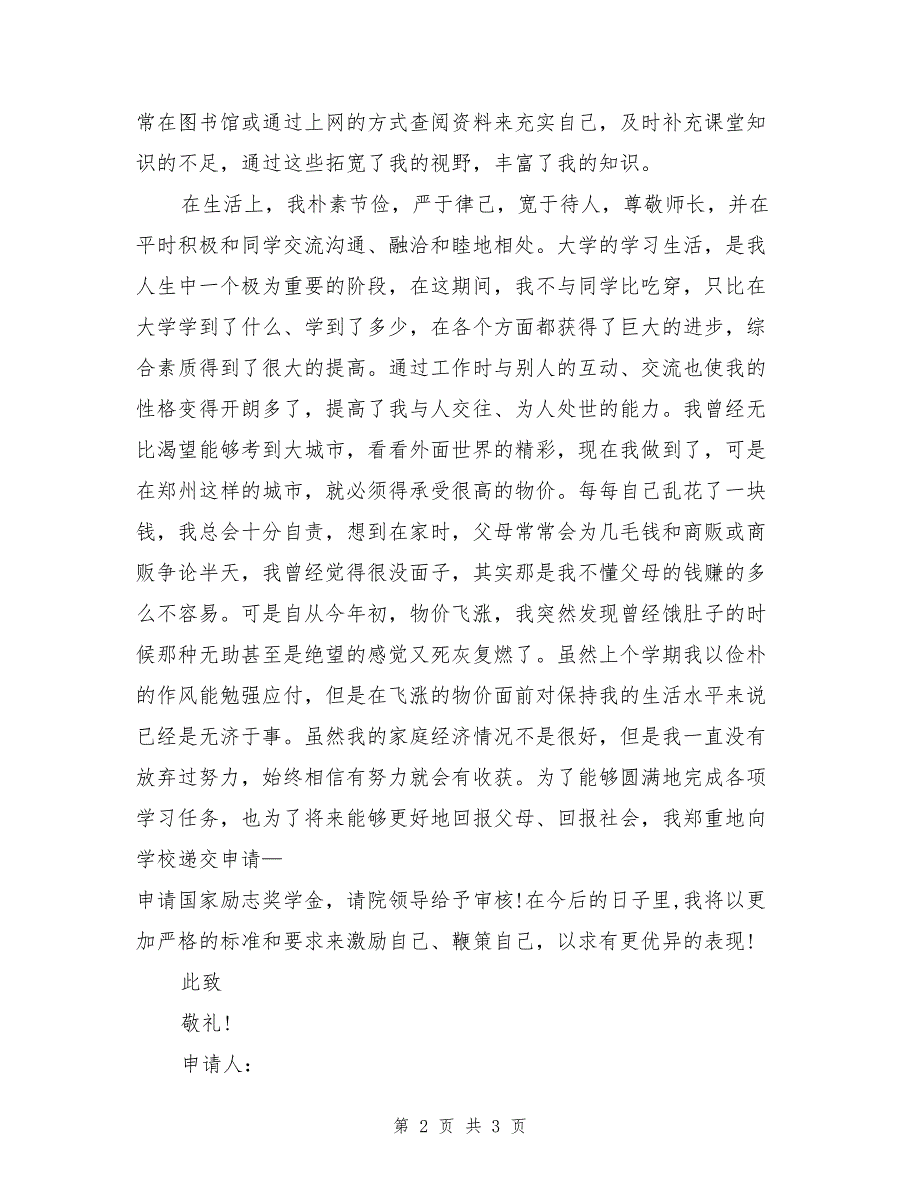 常在图书馆或通过上网的方式查阅资料来充实自己，及时补充课堂知
识的不足，通过这些拓宽了我的视野，丰富了我的知识。
在生活上，我朴素节俭，严于律己，宽于待人，尊敬师长，并在
平时积极和同学交流沟通、融洽和睦地相处。大学的学习生活，是我
人生中一个极为重要的阶段，在这期间，我不与同学比吃穿，只比在
大学学到了什么、学到了多少，在各个方面都获得了巨大的进步，综
合素质得到了很大的提高。通过工作时与别人的互动、交流也使我的
性格变得开朗多了，提高了我与人交往、为人处世的能力。我曾经无
比渴望能够考到大城市，看看外面世界的精彩，现在我做到了，可是
在郑州这样的城市，就必须得承受很高的物价。每每自己乱花了一块
钱，我总会十分自责，想到在家时，父母常常会为几毛钱和商贩或商
贩争论半天，我曾经觉得很没面子，其实那是我不懂父母的钱赚的多
么不容易。可是自从今年初，物价飞涨，我突然发现曾经饿肚子的时
候那种无助甚至是绝望的感觉又死灰复燃了。虽然上个学期我以俭朴
的作风能勉强应付，但是在飞涨的物价面前对保持我的生活水平来说
已经是无济于事。虽然我的家庭经济情况不是很好，但是我一直没有
放弃过努力，始终相信有努力就会有收获。为了能够圆满地完成各项
学习任务，也为了将来能够更好地回报父母、回报社会，我郑重地向
学校递交申请—
申请国家励志奖学金，请院领导给予审核!在今后的日子里,我将以更
加严格的标准和要求来激励自己、鞭策自己，以求有更优异的表现!
此致
敬礼!
申请人：
第 2 页 共 3 页